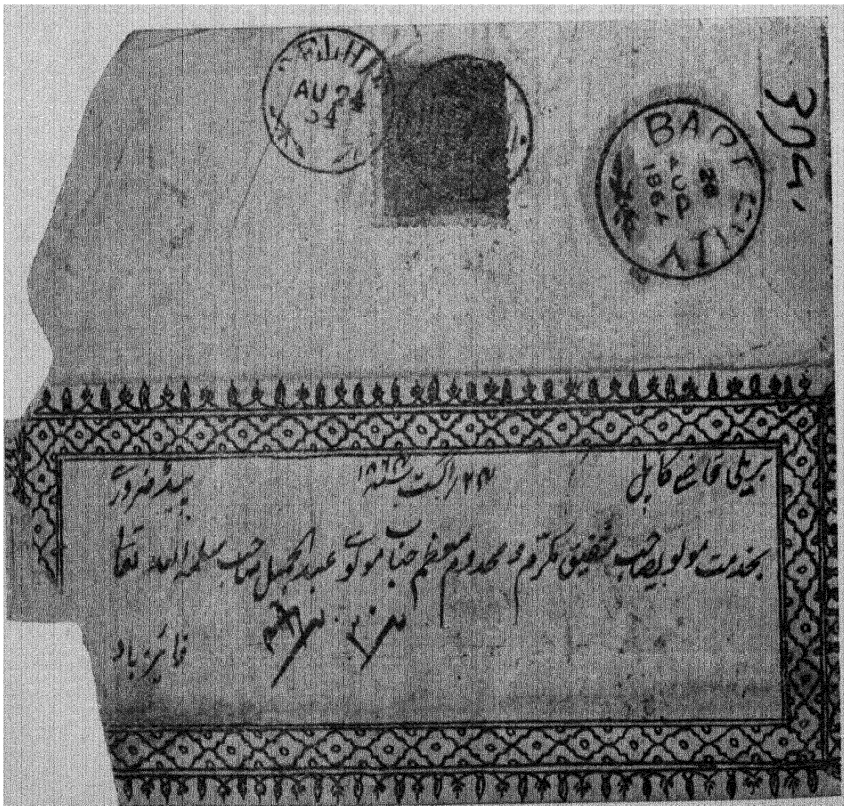 DELHI
AU 24
64
BAREILLY
26
AUG
1864
بریلی قاضی ٹولہ ۲۴ اگست ۱۸۶۴ پیڈ ضروری
بخدمت مولوی صاحب شفیق مکرم و مخدوم معظم جناب مولوی عبدالجمیل صاحب سلمہ اللہ تعالیٰ
فائز باد